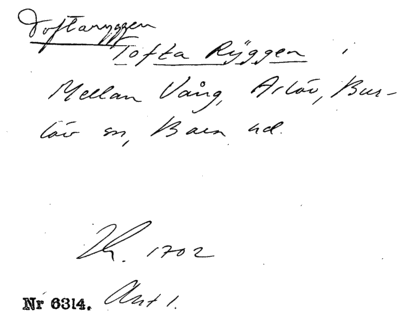 Toftaryggen
Tofta Ryggen i
Mellan Vång, Arlöv, Bur-
löv sn, Bara hd.
1702
Nr 6314. Akt 1.